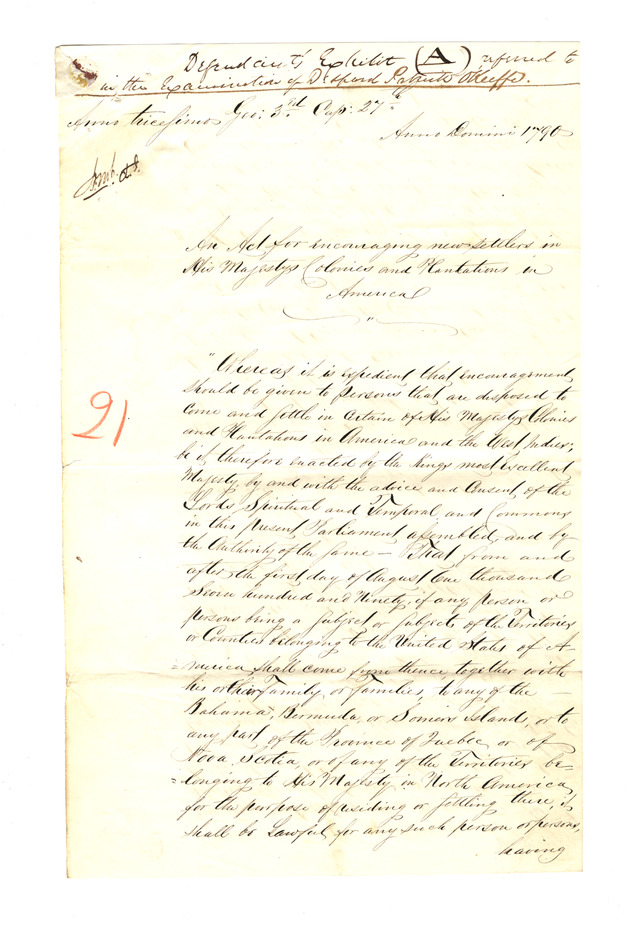 Defendants' Exhibit (A) referred to
in the Examination of
Anno tricesimo Geo: 3rd Cap: 27
Anno Domini 1790
An Act for encouraging new settlers in
His Majestys Colonies and Plantations in
America
"
"Whereas it is expedient that encouragement
should be given to persons that are disposed to
come and settle in certain of His Majestys Colonies
and Plantations in America and the West Indies;
be it therefore enacted by the Kings most Excellent
Majesty, by and with the advice and Consent of the
Lords Spiritual and Temporal and Commons
in this present Parliament assembled, and by
the Authority of the same — That from and
after the first day of August One thousand
Seven hundred and Ninety, if any person or
persons being a subject or subjects of the Territories
or Countries belonging to the United States of A-
=merica shall come from thence, together with
his or their Family or Families, to any of the —
Bahama, Bermuda, or Somers Islands, or to
any part of the Province of Quebec, or of
Nova Scotia, or of any of the Territories be-
=longing to His Majesty in North America,
for the purpose of residing or settling there, it
shall be Lawful for any such person or persons,
having
21